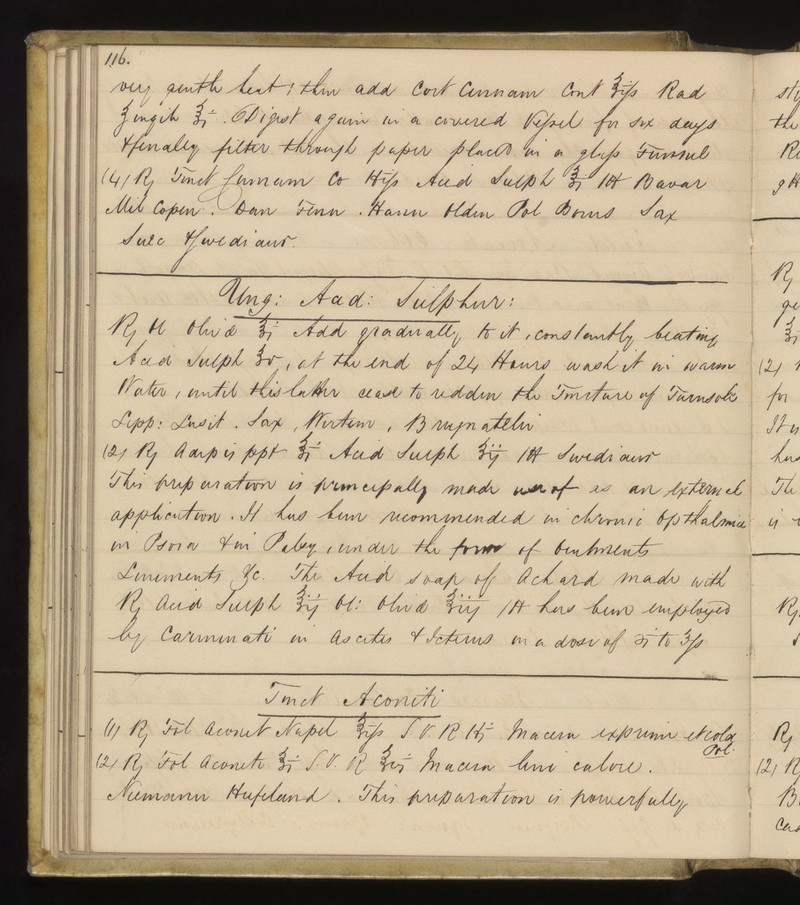 116.
very gentle heat; then add Cort Cinnam Cont ℥iſs Rad
Zingib ℥i. Digest again in a covered Veſsel for six days
& finaley filter through paper placed in a glſs Funnel
(4) ℞ Tinct Cinnam Co ℔iſs Acid Sulph ℥i M Bavar
Mil Copen. Dan Fenn. Hann Olden Pol Boruſs Sax
Suec & Swediaur.
Ung: Acid: Sulphur:
℞ Ol Oliva ℥i Add gradually to it, constantly beating
Acid Sulph ʒv, at the end of 24 Hours wash it in warm
Water, until this latter cease to redden the Tincture of Turnsole
Lipp: Lusit. Sax, Wirtem, Brugnatelli
(2) ℞ Adip is ppt ℥i Acid Sulph ʒij M Swediaur
This preparation is principally made use of as an external
application. It has been recommended in chronic Opthalmia
in Psora & in Palsy, under the form of Ointments
Liniments &c. The Acid soap of Achard made with
℞ Acid Sulph ℥ij Ol: Oliva ℥iij M has been employed
by Carminati in Ascites & Icterus in a dose of ʒi to ℥ſs
Tinct Aconiti
(1) ℞ Fol Aconit Napel ℥iſs S V R ℔i Macera exprime et cola
Pol.
(2) ℞ Fol Aconiti ℥i S. V. R ℥vi Macera leni calore.
Niemann Hufeland. This preparation is powerfully
℞
(2)
for
The
℞
℞
(2) ℞